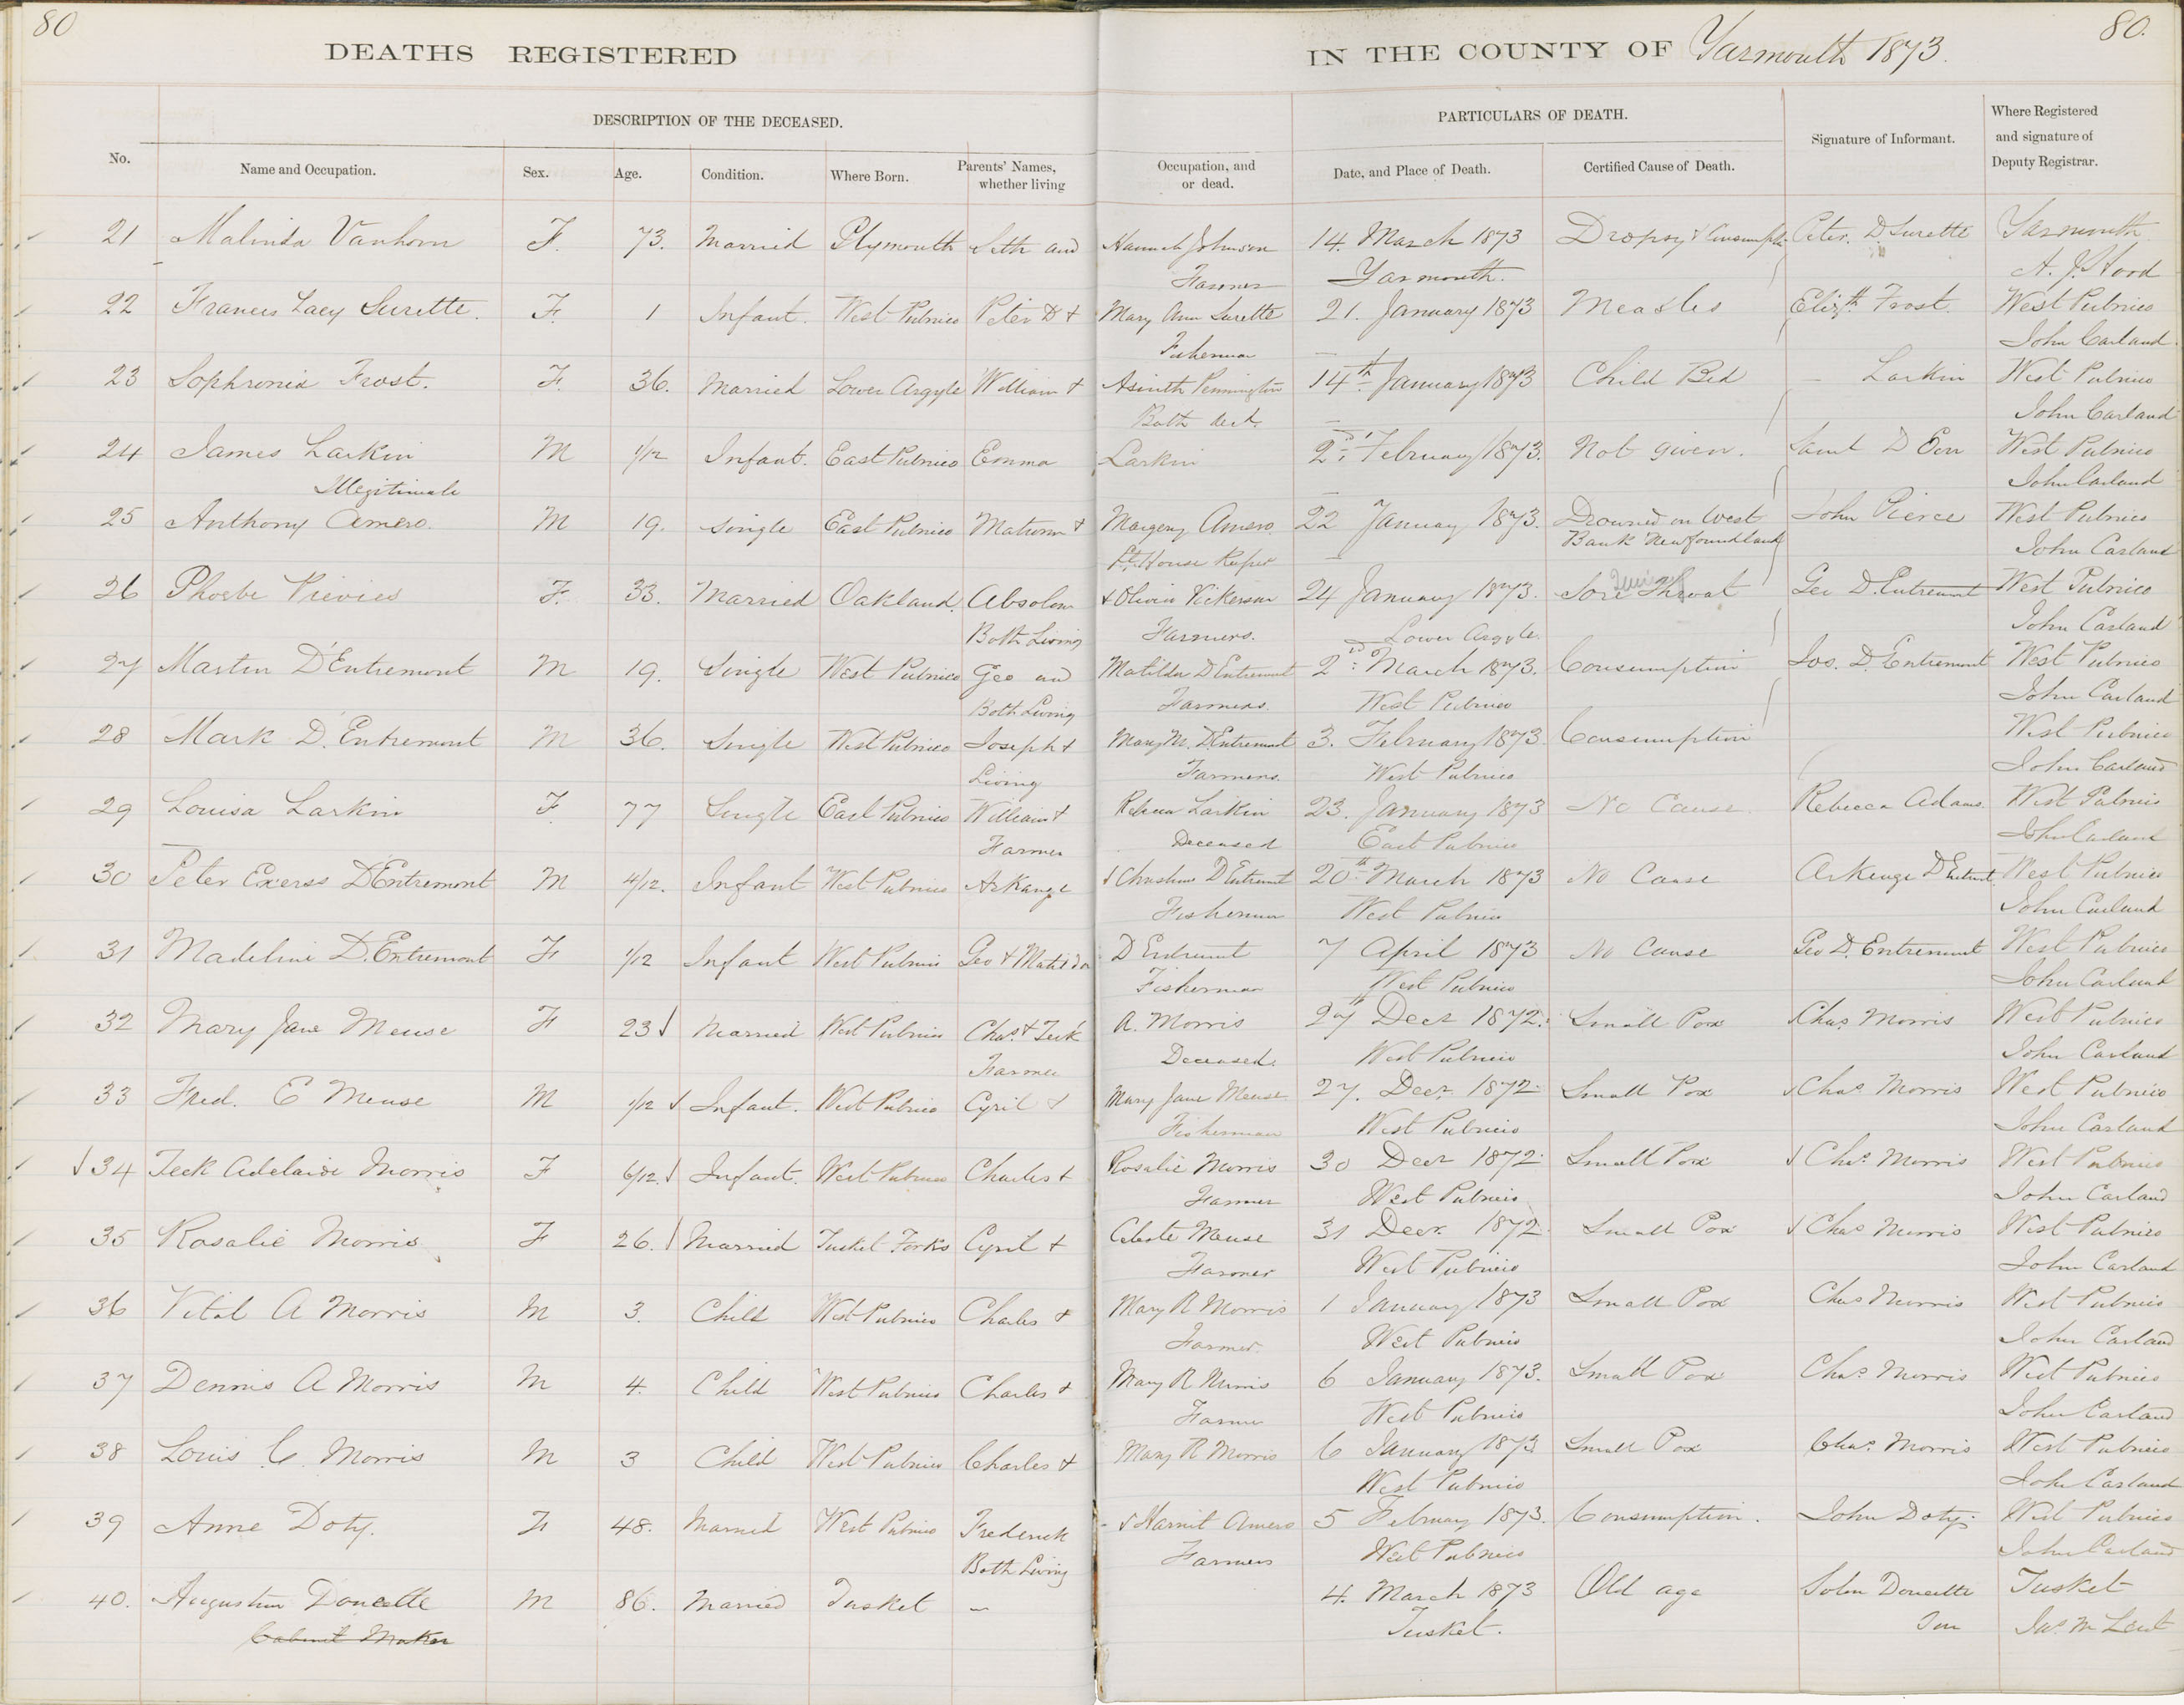 80
80.
DEATHS REGISTERED IN THE COUNTY OF Yarmouth 1873.
DESCRIPTION OF THE DECEASED. PARTICULARS OF DEATH.
No. Name and Occupation. Sex. Age. Condition. Where Born. Parents' Names, whether living Occupation, and or dead. Date, and Place of Death. Certified Cause of Death. Signature of Informant. Where Registered and signature of Deputy Registrar.
21 Malinda Vanhorn F. 73. Married Plymouth Seth and Hannah Johnson 14. March 1873 Dropsy & Consumption Peter. D. Surette Yarmouth
Farmer Yarmouth. A. J. Hood
22 Frances Lacy Surette. F. 1 Infant. West Pubnico Peter D + Mary Ann Surette 21. January 1873 Measles Elizth. Frost. West Pubnico
Fisherman John Carland
23 Sophronia Frost. F. 36. Married Lower Argyle William + Asinith Pennington 14th January 1873 Child Bed — Larkin West Pubnico
Both dead. John Carland
24 James Larkin M 1/12 Infant. East Pubnico Emma Larkin 2nd February 1873. Not given. West Pubnico
Illegitimate John Carland
25 Anthony Amero. M 19. Single East Pubnico + Margery Amero. 22 January 1873. Drowned on West John Pierce West Pubnico
Lt. House Keeper Bank Newfoundland John Carland
26 Phoebe F. 33. Married Oakland. Absolom + Olivia Vickerson 24 January 1873. Sore Throat Geo D. Entremont West Pubnico
Both Living Farmers. Lower Argyle. John Carland
27 Martin D'Entremont M 19. Single West Pubnico Geo and Matilda D Entremont 2nd March 1873. Consumption Jos. D. Entremont West Pubnico
Both Living Farmers. West Pubnico John Carland
28 Mark D. Entremont M 36. Single West Pubnico Joseph + Mary M. D.Entremont 3. February 1873. Consumption West Pubnico
Living Farmers. West Pubnico John Carland
29 Louisa Larkin F 77 Single East Pubnico William + Rebecca Larkin 23. January 1873 No Cause. Rebecca Adams. West Pubnico
Farmer Deceased East Pubnico John Carland
30 Peter D'Entremont M 4/12. Infant West Pubnico Arkange D Entremont 20th March 1873 No Cause D Entremt. West Pubnico
Fisherman West Pubnico John Carland
31 Madeline D. Entremont F 1/12 Infant West Pubnico Geo + Matilda D Entremont 7 April 1873 No Cause Geo D. Entremont West Pubnico
Fisherman West Pubnico John Carland
32 Mary Jane Meuse F 23 Married West Pubnico Chas. + Teek A. Morris 27 Decr 1872. Small Pox Chas Morris West Pubnico
Farmer Deceased. West Pubnico John Carland
33 Fred. E Meuse M 1/12 Infant. West Pubnico Cyril + Mary Jane Meuse 27. Decr. 1872 Small Pox Chas Morris West Pubnico
Fisherman West Pubnico John Carland
34 Teek Adelaide Morris F 6/12. Infant. West Pubnico Charles + Rosalie Morris 30 Decr 1872. Small Pox Chas. Morris West Pubnico
Farmer West Pubnico John Carland
35 Rosalie Morris F 26. Married Tusket Forks Cyril + Celeste Meuse 31 Decr. 1872. Small Pox Chas Morris West Pubnico
Farmer West Pubnico John Carland
36 Vital A Morris M 3. Child West Pubnico Charles + Mary R Morris 1 January 1873 Small Pox Chas Morris West Pubnico
Farmer. West Pubnico John Carland
37 Dennis A Morris M 4. Child West Pubnico Charles + Mary R Morris 6 January 1873. Small Pox Chas. Morris West Pubnico
Farmer West Pubnico John Carland
38 Louis C. Morris M 3 Child West Pubnico Charles + Mary R Morris 6 January 1873 Small Pox Chas. Morris West Pubnico
West Pubnico John Carland
39 Anne Doty. F 48. Married West Pubnico Frederick + Harriet Amero 5 February 1873. Consumption. John Doty. West Pubnico
Both Living Farmers West Pubnico John Carland
40. Augustin Doucette M 86. Married Tusket — 4. March 1873 Old age John Doucette Tusket
Cabinet Maker Tusket. Jas. M Lent